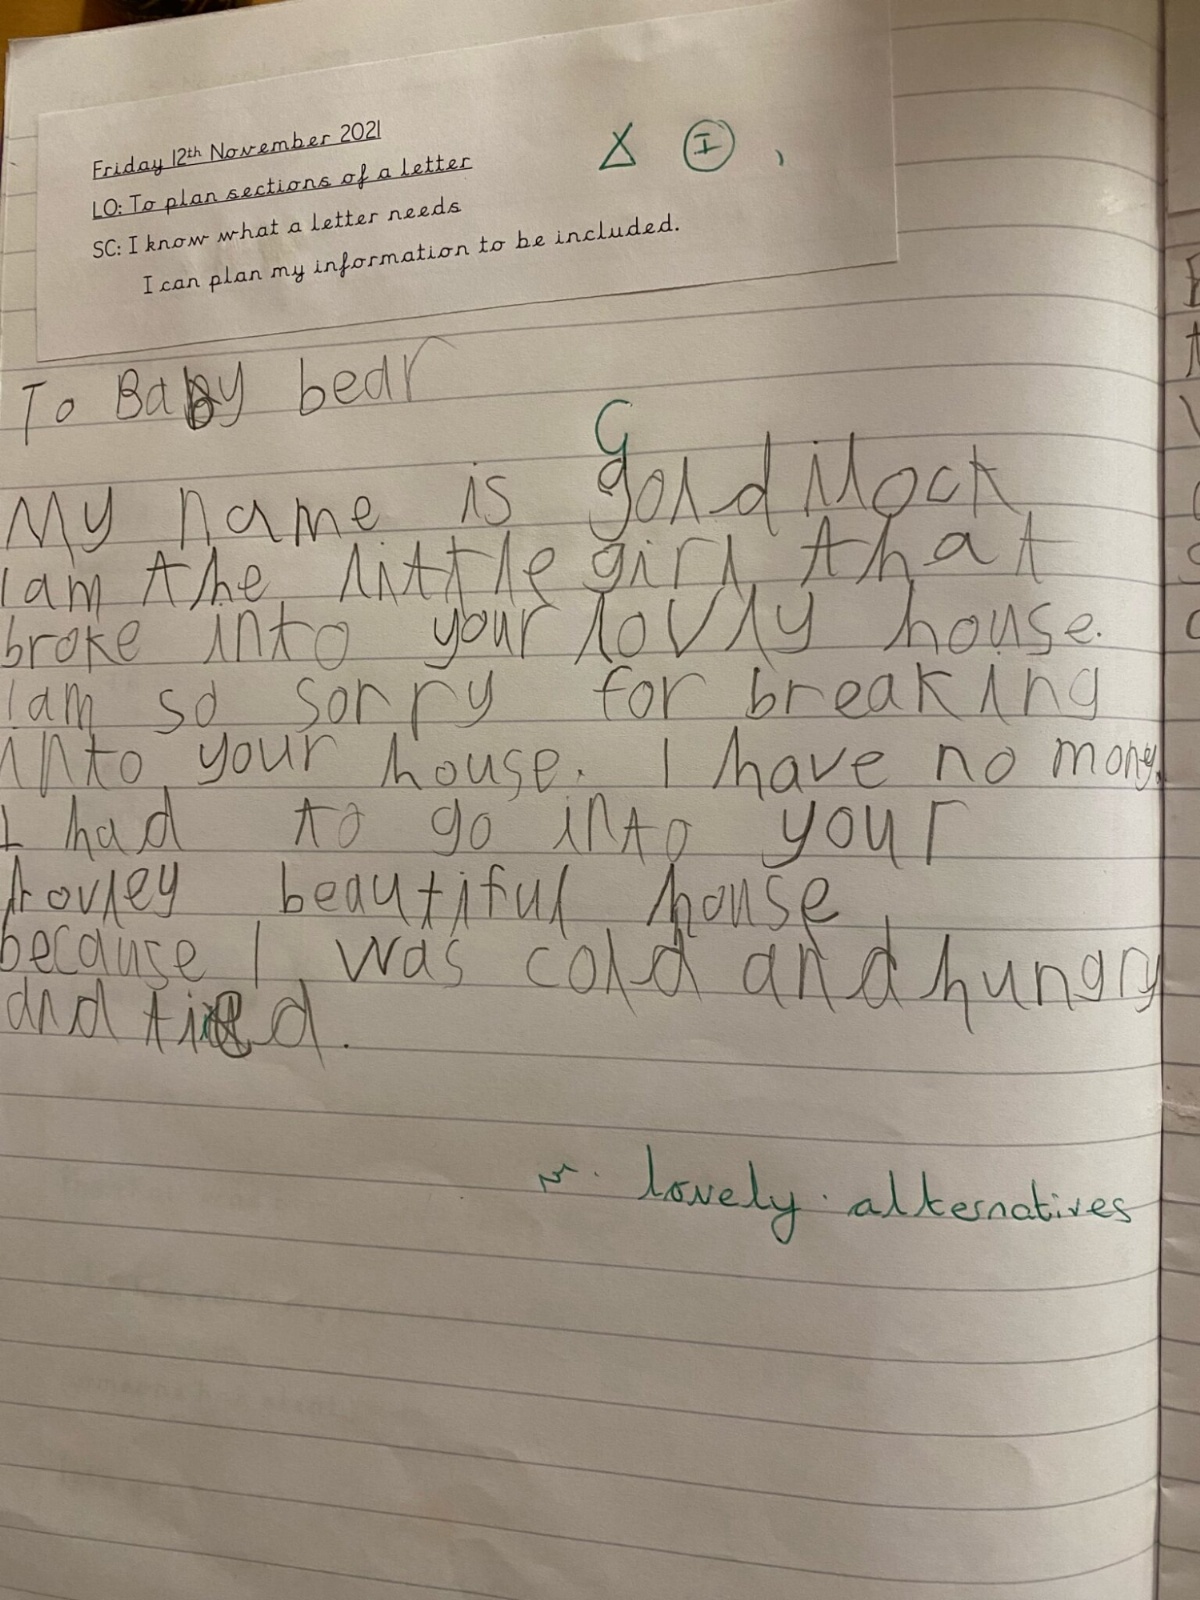 Friday 12th November 2021
LO: To plan sections of a letter
SC: I know what a letter needs
I can plan my information to be included.
I
To Baby bear
G
My name is goldilock
I am the little girl that
broke into your lovly house.
I am so sorry for breaking
into your house. I have no mony.
I had to go into your
lovley beautiful house
because I was cold and hungry
and tired.
lovely alternatives